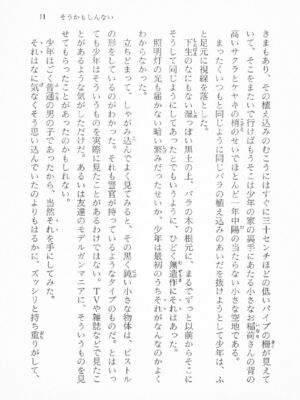 11　そうかもしんない
きまもあり、その植え込みのむこうにはすぐに三十センチほどの低いパイプの柵が見えて
それをまたいで行けばもうそこは少年の家の裏手にあたる小さなお稲荷さんの背の
高いサクラとケヤキの梢のせいでほとんど一年中陽の当たらない小さな空地である。
まったくいつもと同じように同じバラの植え込みのあいだを抜けようとして少年は、ふ
と足元に視線を落とした。
下生のなにもない湿っぽい黒土の上、バラの木の根元に、まるでずっと以前からそこに
そうして同じようにしてあったとでもいうように、ひどく無造作にそれはあった。
照明灯の光も届かない暗い繁みだったせいか、少年は最初のうちそれがなんなのかよく
わからなかった。
立ちどまって、しゃがみ込んでよく見てみると、その黒く鈍い小さな物体は、ピストル
の形をしているのがわかった。それも警官が持っているようなタイプのものだ。とはいっ
ても少年はそういうものを実際に見たことがあるわけではない。TVや雑誌などで見たこ
とがあるような気がしただけだ。あるいは友達のモデルガンマニアに、そういうものを見
せてもらったことがあったのかもしれない。
少年はごく普通の男の子であったから、当然それを手にしてみた。
それはなに気なくそう思い込んでいたのよりもはるかに、ズッシリと持ち重りがして、